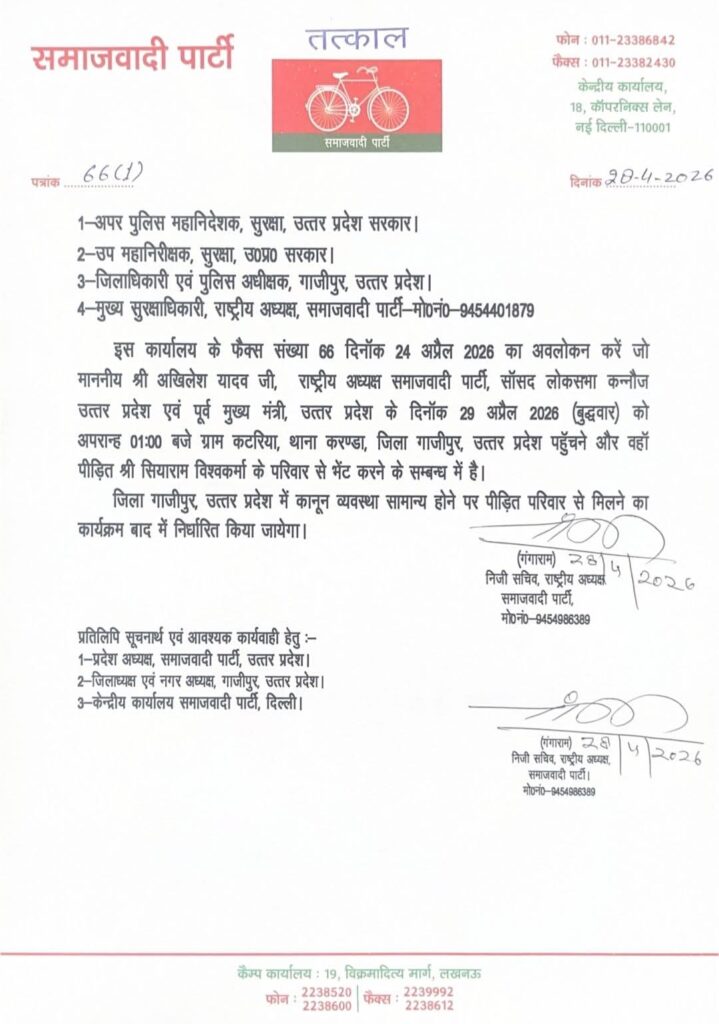 समाजवादी पार्टी
तत्काल
समाजवादी पार्टी
फोन : 011-23386842
फैक्स : 011-23382430
केन्द्रीय कार्यालय,
18, कॉपरनिक्स लेन,
नई दिल्ली-110001
पत्रांक 66(1)
दिनांक 28-4-2026
1–अपर पुलिस महानिदेशक, सुरक्षा, उत्तर प्रदेश सरकार।
2–उप महानिरीक्षक, सुरक्षा, उ0प्र0 सरकार।
3–जिलाधिकारी एवं पुलिस अधीक्षक, गाजीपुर, उत्तर प्रदेश।
4–मुख्य सुरक्षाधिकारी, राष्ट्रीय अध्यक्ष, समाजवादी पार्टी–मो0नं0–9454401879
इस कार्यालय के फैक्स संख्या 66 दिनॉक 24 अप्रैल 2026 का अवलोकन करें जो
माननीय श्री अखिलेश यादव जी, राष्ट्रीय अध्यक्ष समाजवादी पार्टी, सॉसद लोकसभा कन्नौज
उत्तर प्रदेश एवं पूर्व मुख्य मंत्री, उत्तर प्रदेश के दिनॉक 29 अप्रैल 2026 (बुद्धवार) को
अपरान्ह 01:00 बजे ग्राम कटरिया, थाना करण्डा, जिला गाजीपुर, उत्तर प्रदेश पहुँचने और वहॉ
पीड़ित श्री सियाराम विश्वकर्मा के परिवार से भेंट करने के सम्बन्ध में है।
जिला गाजीपुर, उत्तर प्रदेश में कानून व्यवस्था सामान्य होने पर पीड़ित परिवार से मिलने का
कार्यक्रम बाद में निर्धारित किया जायेगा।
(गंगाराम) 28/4/2026
निजी सचिव, राष्ट्रीय अध्यक्ष
समाजवादी पार्टी,
मो0नं0–9454986389
प्रतिलिपि सूचनार्थ एवं आवश्यक कार्यवाही हेतु :–
1–प्रदेश अध्यक्ष, समाजवादी पार्टी, उत्तर प्रदेश।
2–जिलाध्यक्ष एवं नगर अध्यक्ष, गाजीपुर, उत्तर प्रदेश।
3–केन्द्रीय कार्यालय समाजवादी पार्टी, दिल्ली।
(गंगाराम) 28/4/2026
निजी सचिव, राष्ट्रीय अध्यक्ष,
समाजवादी पार्टी।
मो0नं0–9454986389
कैम्प कार्यालय : 19, विक्रमादित्य मार्ग, लखनऊ
फोन : 2238520 2238600 फैक्स : 2239992 2238612